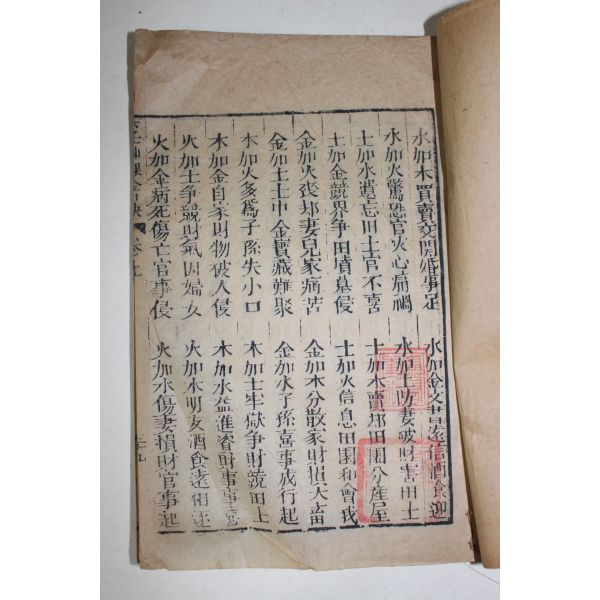 水加木買賣交開婚事足 水加金文書遠信酒食迎
水加火驚恐官灾心痛禍 水加土防妻破財害田土
土加水遺忘田土官不喜 土加木賣却田園分産屋
土加金競界争田墳墓侵 土加火信息田園和會成
金加火喪却妻兒家痛苦 金加木分散家財損六畜
金加土土中金寶藏難聚 金加水子孫喜事成行起
木加火多爲子孫失小口 木加土牢獄争財競田土
木加金自家財物破人侵 木加水益進資財事事喜
火加土争競財氣因婦女 火加木朋友酒食遠相逐
火加金病死傷亡官事侵 火加水傷妻損財官事起